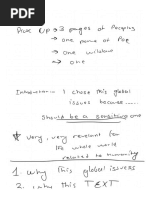 Pick up → 3 pages of Persepolis
→ one poem of Poe
→ one
→ one
Introduction... I chose this global
issues because.....
Should be a sentence one
Very, very relevant for
the whole world
related to humanity
1. Why this global issues
2. why this TEXT